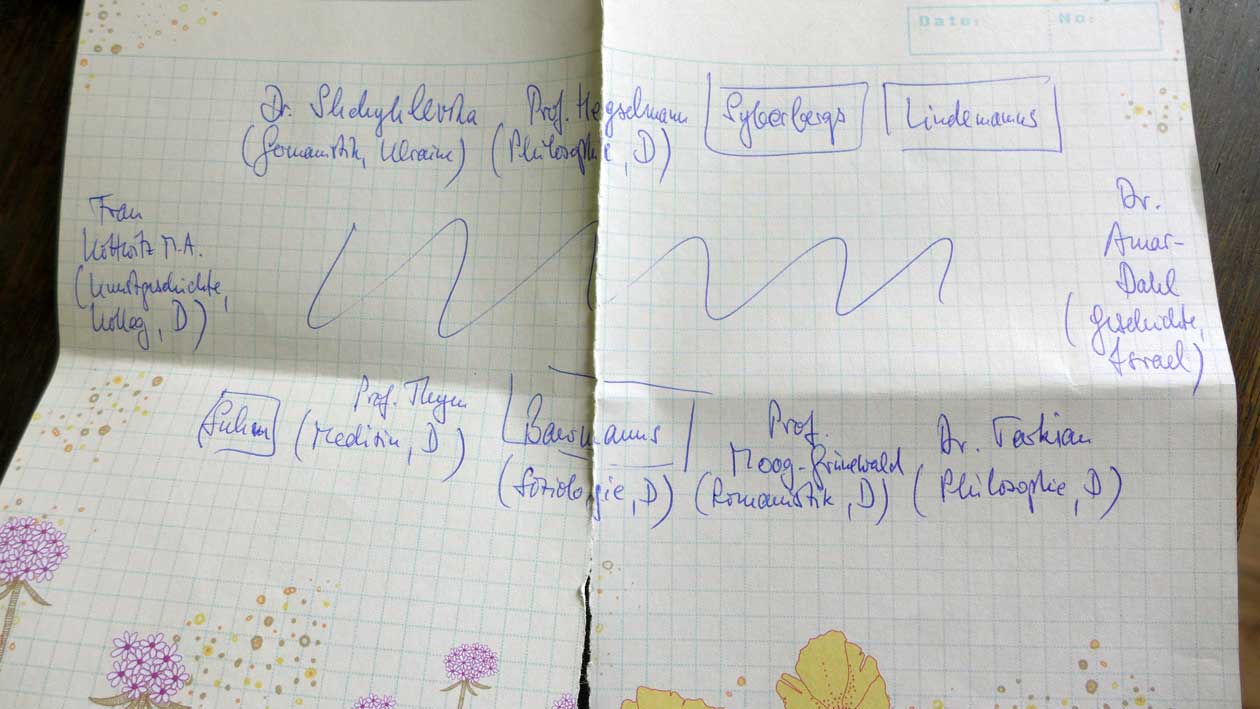 Date: No:
Dr. Shchyhlevska Prof. Hegselmann Syberbergs Lindemanns
(Germanistik, Ukraine) (Philosophie, D)
Frau
Kottwitz M.A.
(Kunstgeschichte,
Kolleg, D)
Dr.
Amar-
Dahl
(Geschichte,
Israel)
Prof. Thym
(Medizin, D) Baurmanns
(Soziologie, D)
Prof.
Moog-Grünewald
(Romanistik, D)
Dr. Tarkian
(Philosophie, D)